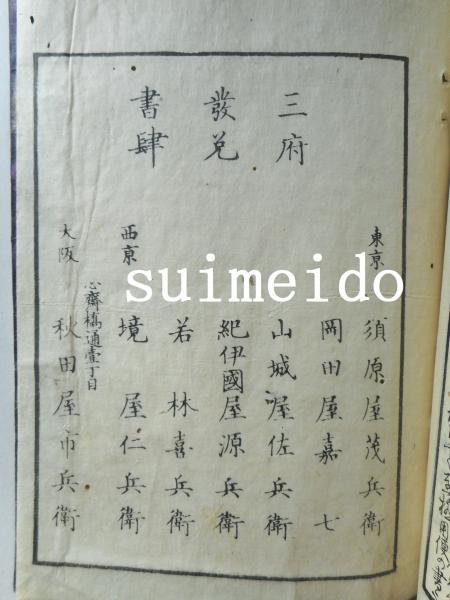 三府
發兌
書肆
東京
須原屋茂兵衛
岡田屋嘉七
山城屋佐兵衛
紀伊國屋源兵衛
若林喜兵衛
西京
境屋仁兵衛
大阪
心齋橋通壹丁目
秋田屋市兵衛
suimeido